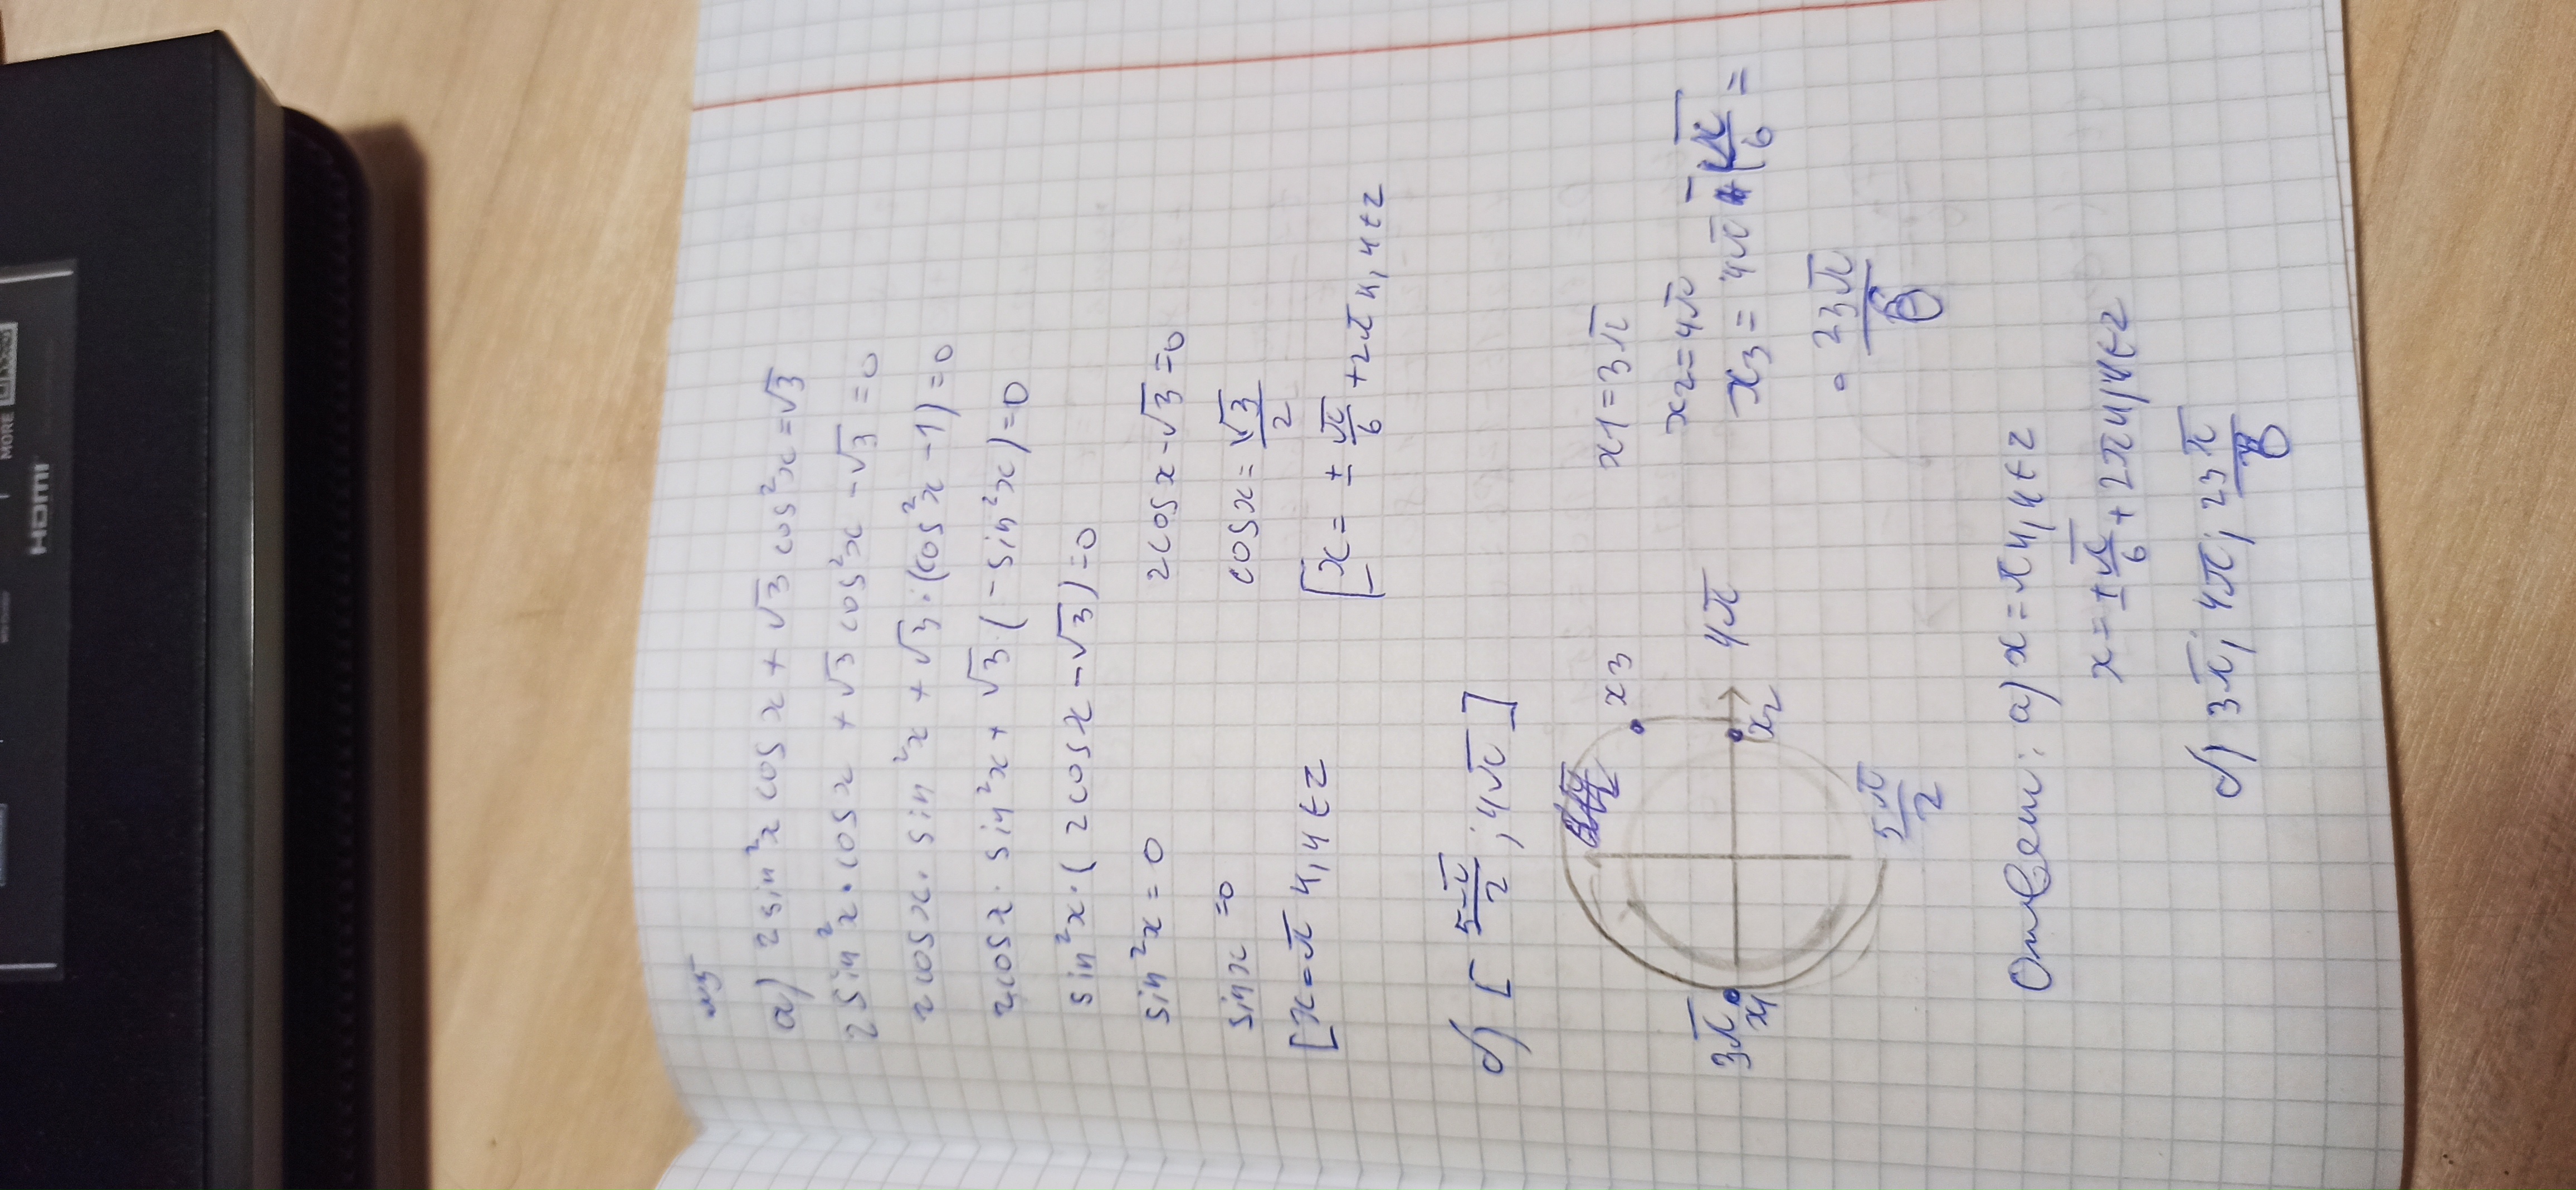 MORE
HDMI
№5
а) 2sin²x cos x + √3 cos²x = √3
2sin²x · cosx + √3 cos²x - √3 = 0
2cosx · sin²x + √3 · (cos²x - 1) = 0
2cosx · sin²x + √3 (-sin²x) = 0
sin²x · (2cosx - √3) = 0
sin²x = 0 2cosx - √3 = 0
sinx = 0 cosx = √3/2
[x = πn, n∈z [x = ± π/6 + 2πn, n∈z
б) [5π/2; 4π]
x3 x1 = 3π
x2 = 4π
3π 4π x3 = 4π - π/6 =
x1 x2
= 23π/6
5π/2
Ответ: а) x = πn, n∈z
x = ± π/6 + 2πn, n∈z
б) 3π; 4π; 23π/6